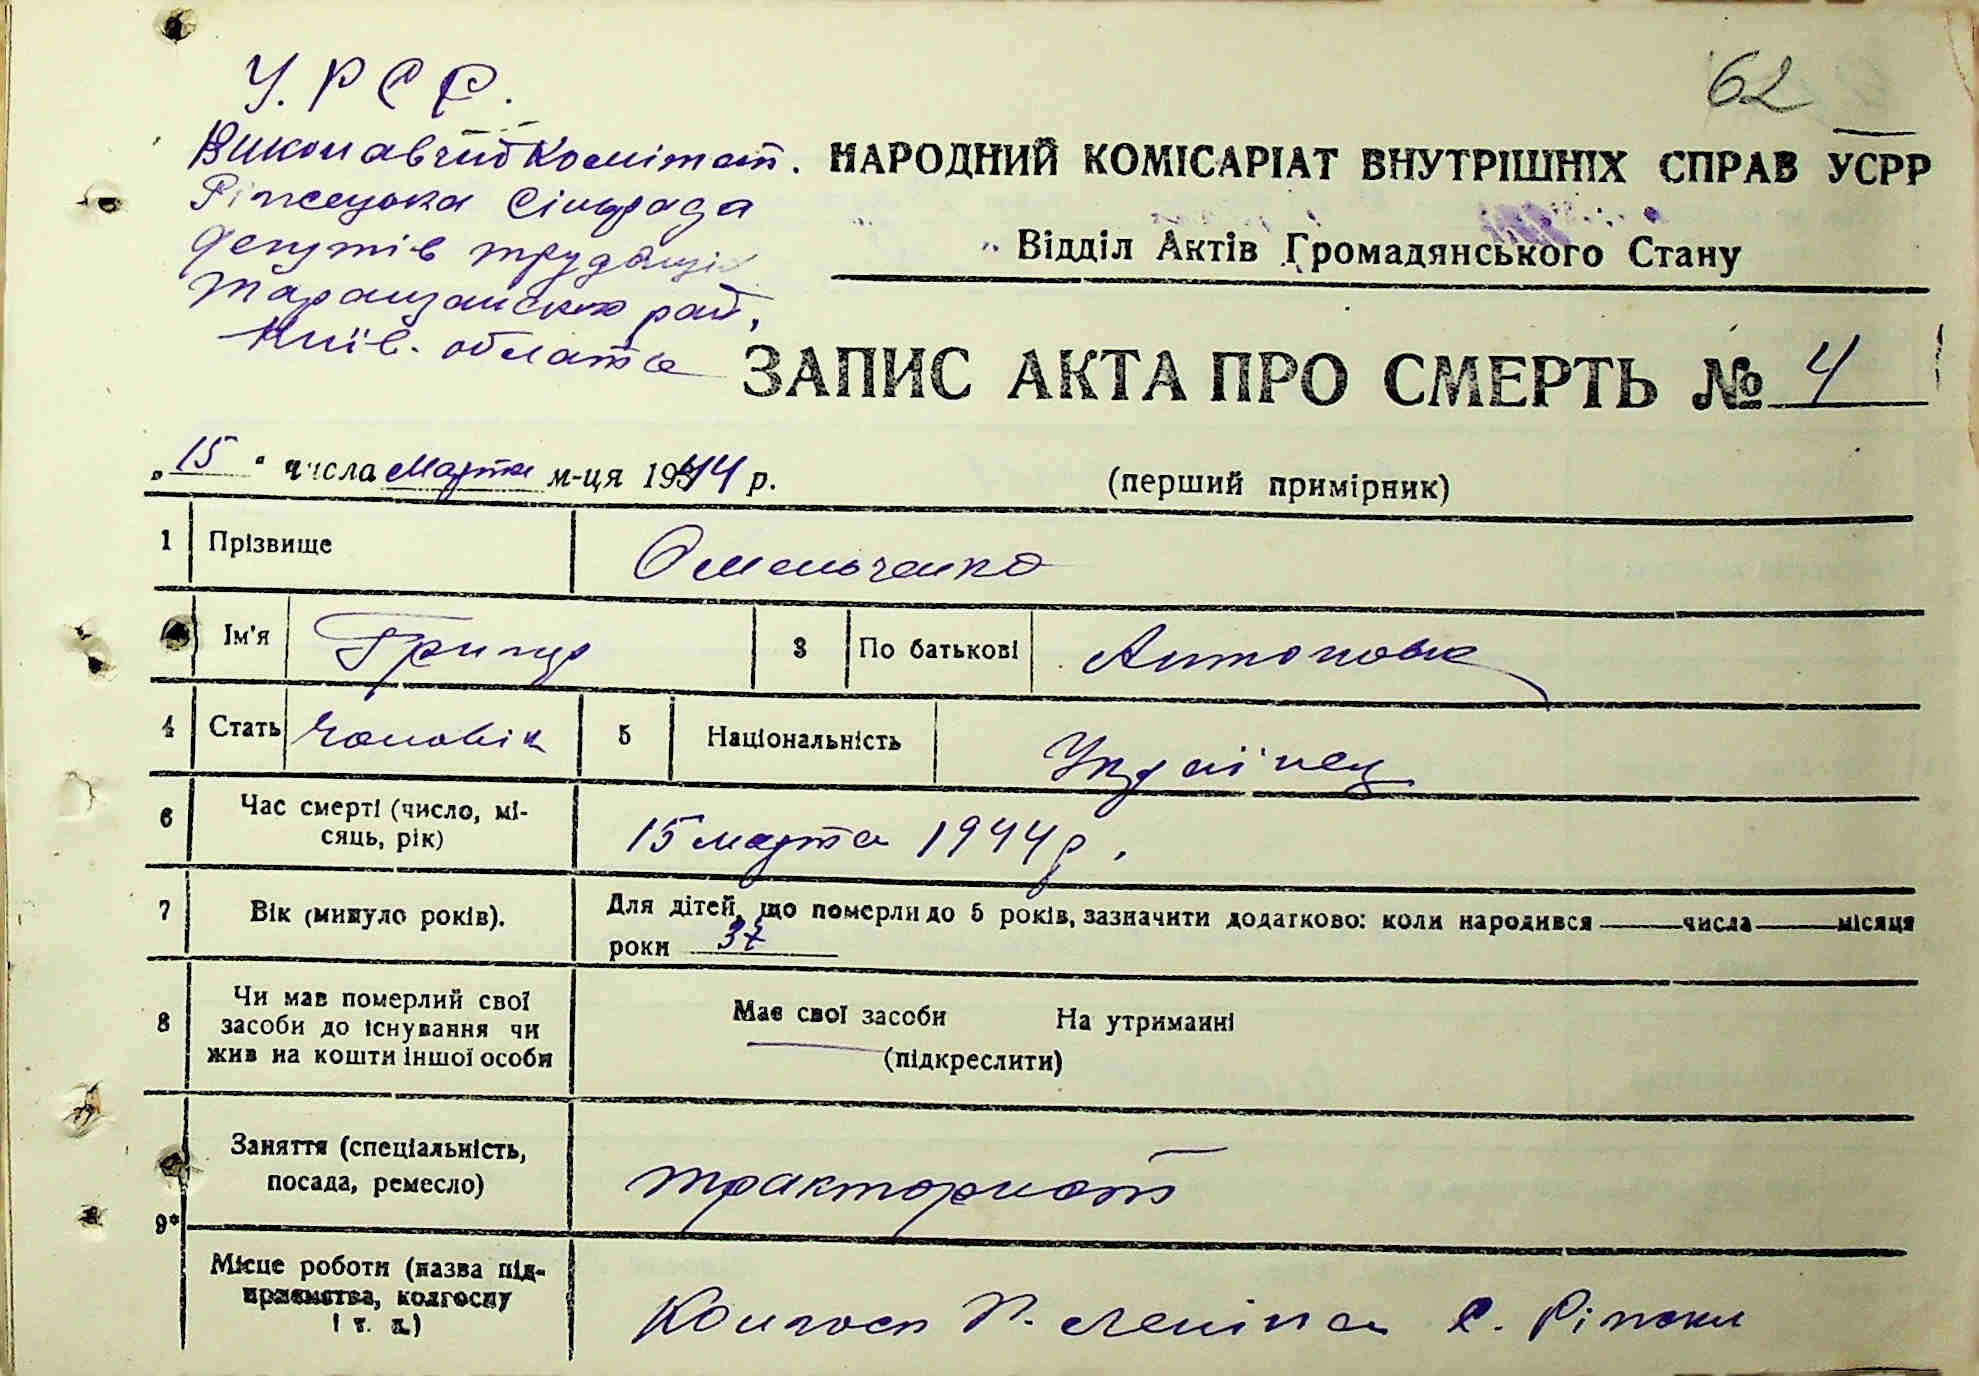 62
У.Р.С.Р.
Виконавчий Комітет.
Ріжецька Сільрада
депутів трудящих
Таращанского рай,
Київ. область
НАРОДНИЙ КОМІСАРІАТ ВНУТРІШНІХ СПРАВ УСРР
Відділ Актів Громадянського Стану
ЗАПИС АКТА ПРО СМЕРТЬ № 4
„15" числа Марта м-ця 1944 р.
(перший примірник)
1 Прізвище Омельченко
Ім'я Грицко 3 По батькові Антонович
4 Стать Чоловік 5 Національність Українец
6 Час смерті (число, мі-
сяць, рік) 15 марта 1944 р.
7 Вік (минуло років). Для дітей, що померли до 5 років, зазначити додатково: коли народився числа місяця
роки 37
8 Чи мав померлий свої
засоби до існування чи
жив на кошти іншої особи
Має свої засоби На утриманні
(підкреслити)
Заняття (спеціальність,
посада, ремесло) тракторист
9*
Місце роботи (назва під-
приємства, колгоспу
і т. д.) Колгосп ім. Леніна с. Ріжки